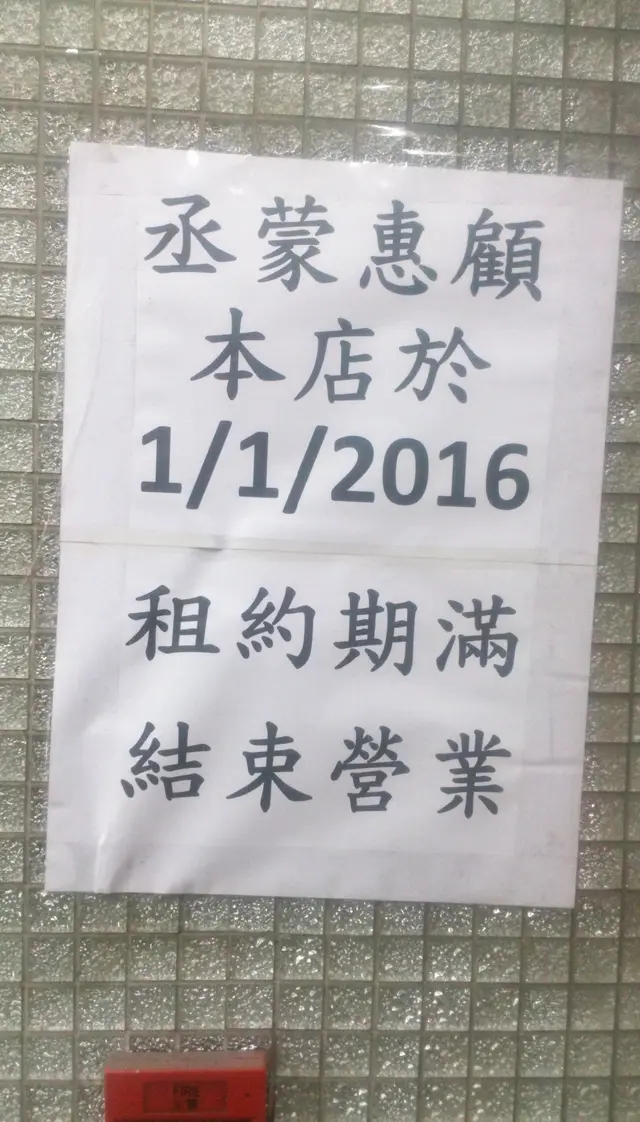 丞蒙惠顧
本店於
1/1/2016
租約期滿
結束營業
FIRE
火警